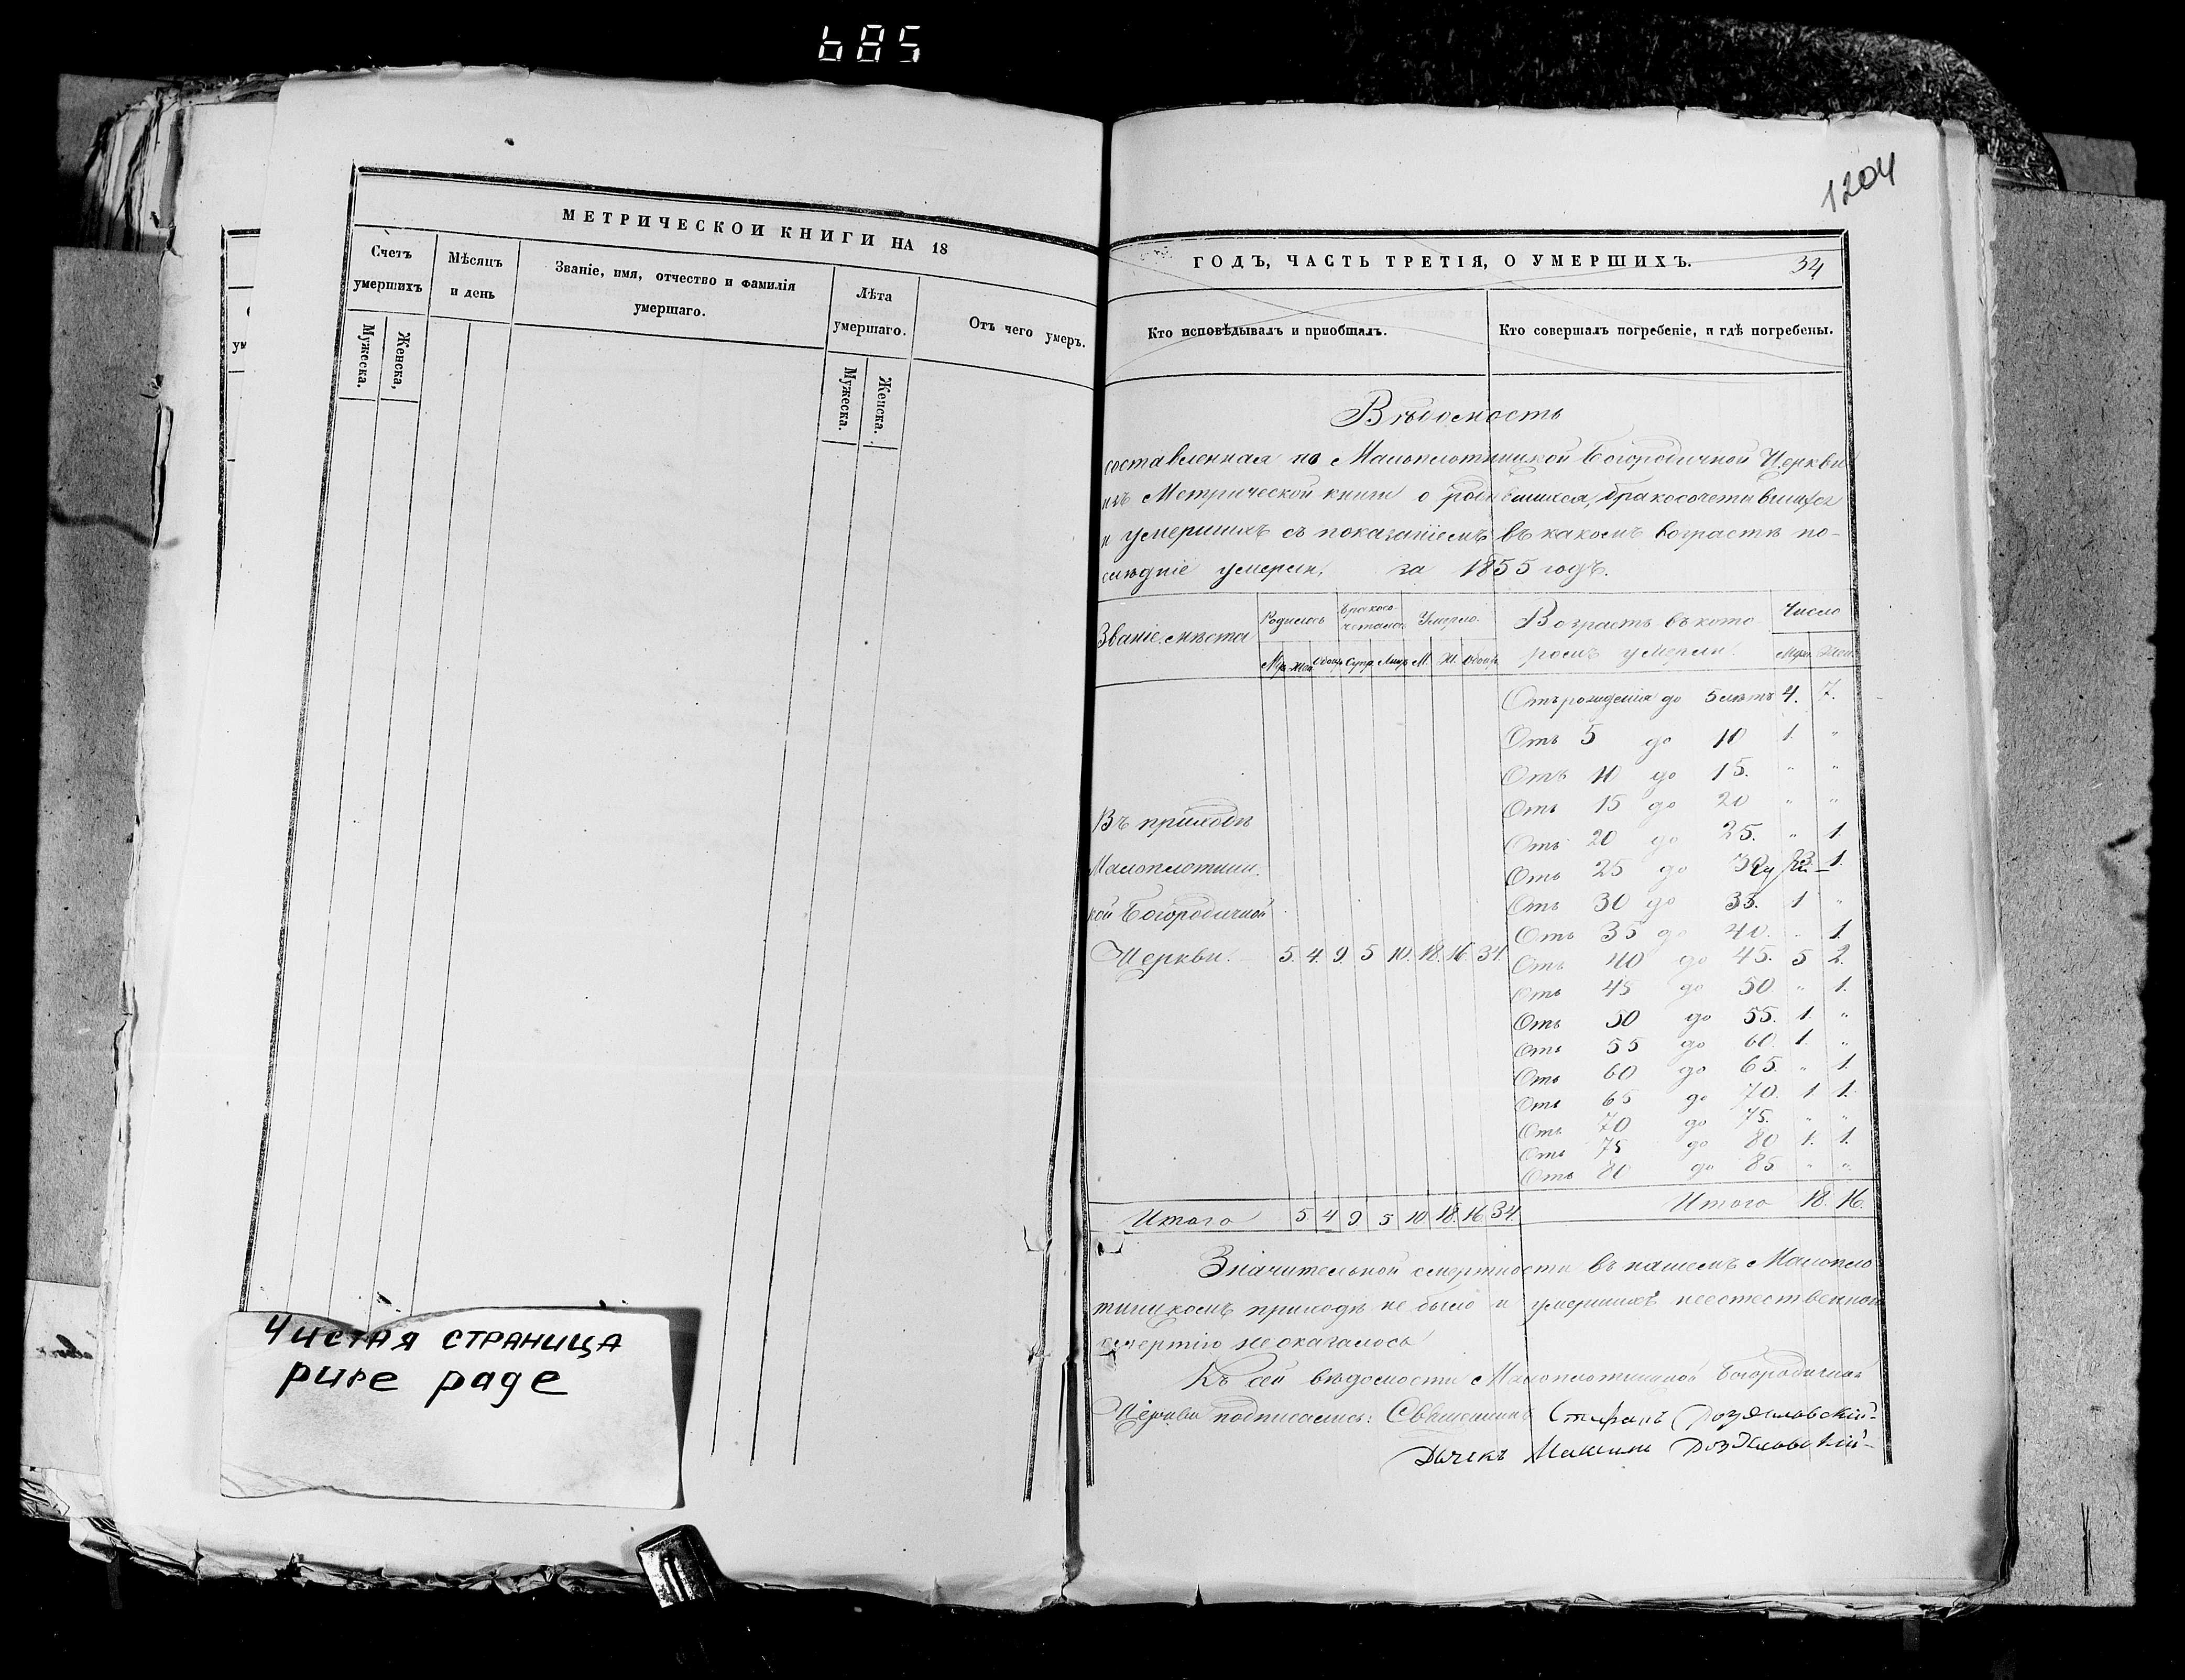 685
МЕТРИЧЕСКОЙ КНИГИ НА 18
Счетъ умершихъ
Мѣсяцъ и день
Званіе, имя, отчество и фамилія умершаго.
Лѣта умершаго.
Отъ чего умеръ.
Мужеска.
Женска,
Мужеска.
Женска.
Чистая страница
pure page
1204
ГОДЪ, ЧАСТЬ ТРЕТІЯ, О УМЕРШИХЪ.
34
Кто исповѣдывалъ и пріобщалъ.
Кто совершалъ погребеніе, и гдѣ погребены.
Вѣдомость
составленная по Малоплотницкой Богородичной Церкви
изъ Метрической книги о родившихся, бракосочетавшихся
и умершихъ съ показаніемъ въ какомъ возрастѣ по-
слѣдніе умерли, за 1855 годъ.
Званіе мѣста
Родилось
Бракосо-
четалось
Умерло.
Возрастъ въ кото
ромъ умерли.
Число
Отъ рожденія до 5 лѣтъ 4. 7.
Отъ 5 до 10 1. „
Отъ 10 до 15. „ „
Отъ 15 до 20 „ „
Отъ 20 до 25. „ 1.
Отъ 25 до 1.
Отъ 30 до 35. 1 „
Отъ 35 до 40. „ 1.
Отъ 40 до 45. 5 2.
Отъ 45 до 50. „ 1.
Отъ 50 до 55. 1. „
Отъ 55 до 60. 1. „
Отъ 60 до 65. „ 1.
Отъ 65 до 70. 1 1.
Отъ 70 до 75. „ „
Отъ 75 до 80 1. 1.
Отъ 80 до 85 „ „
Въ приходѣ
Малоплотниц-
кой Богородичной
Церкви. 5. 4. 9. 5 10. 18. 16. 34.
Итого 5 4 9. 5 10. 18. 16. 34.
Итого 18. 16.
Значительной смертности въ нашемъ Малопло
тницкомъ приходѣ не было и умершихъ неестественною
смертію не оказалось
Къ сей вѣдомости Малоплотницкой Богородичной
Церкви подписались: Священникъ Стефанъ
Дьячекъ